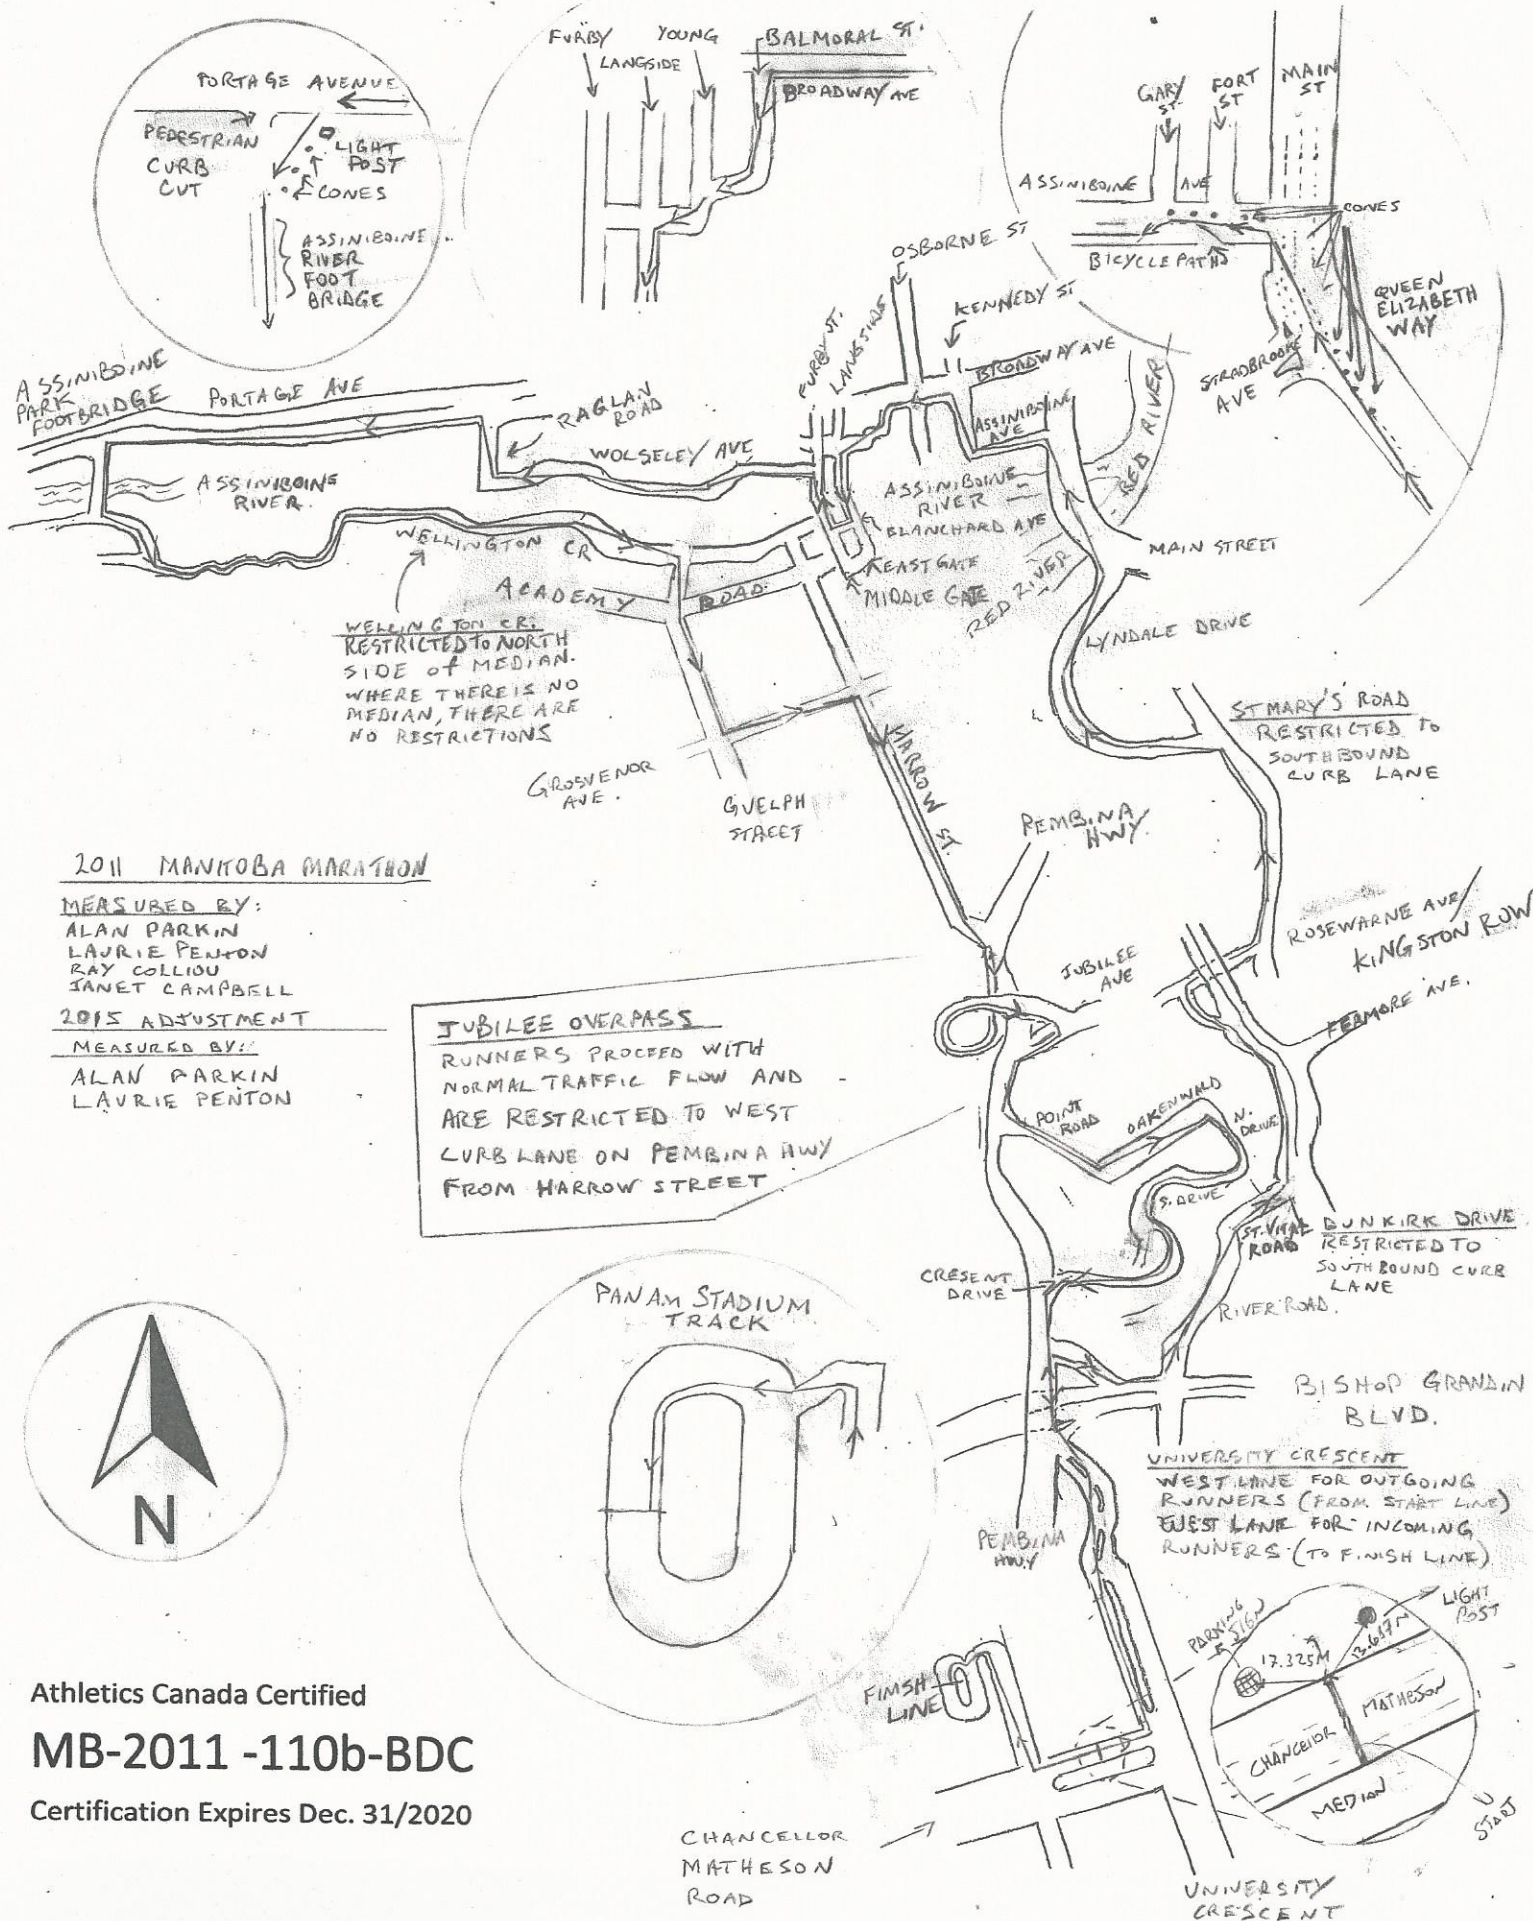 PORTAGE AVENUE
PEDESTRIAN
CURB
CUT
LIGHT
POST
CONES
ASSINIBOINE
RIVER
FOOT
BRIDGE
FURBY
YOUNG
LANGSIDE
BALMORAL ST.
BROADWAY AVE
GARY
ST.
FORT
ST
MAIN
ST
ASSINIBOINE AVE
CONES
BICYCLE PATHS
QUEEN
ELIZABETH
WAY
STRADBROOKE
AVE
OSBORNE ST
KENNEDY ST
FURBY ST.
LANGSIDE
BROADWAY AVE
ASSINIBOINE
AVE
RED RIVER
ASSINIBOINE
PARK
FOOTBRIDGE
PORTAGE AVE
RAGLAN
ROAD
WOLSELEY AVE
ASSINIBOINE
RIVER.
ASSINIBOINE
RIVER
BLANCHARD AVE
EASTGATE
MIDDLE GATE
RED RIVER
MAIN STREET
LYNDALE DRIVE
WELLINGTON CR
ACADEMY ROAD
WELLINGTON CR.
RESTRICTED TO NORTH
SIDE of MEDIAN.
WHERE THERE IS NO
MEDIAN, THERE ARE
NO RESTRICTIONS
ST MARY'S ROAD
RESTRICTED TO
SOUTHBOUND
CURB LANE
GROSVENOR
AVE.
GUELPH
STREET
HARROW ST.
PEMBINA
HWY.
2011 MANITOBA MARATHON
MEASURED BY:
ALAN PARKIN
LAURIE PENTON
RAY COLLIOU
JANET CAMPBELL
2015 ADJUSTMENT
MEASURED BY:
ALAN PARKIN
LAURIE PENTON
ROSEWARNE AVE/
KINGSTON ROW
JUBILEE
AVE
FERMORE AVE.
JUBILEE OVERPASS
RUNNERS PROCEED WITH
NORMAL TRAFFIC FLOW AND
ARE RESTRICTED TO WEST
CURB LANE ON PEMBINA HWY
FROM HARROW STREET
POINT
ROAD
OAKENWALD
N.
DRIVE
S. DRIVE
ST. VITAL
ROAD
DUNKIRK DRIVE
RESTRICTED TO
SOUTHBOUND CURB
LANE
CRESENT
DRIVE
RIVER ROAD.
PANAM STADIUM
TRACK
BISHOP GRANDIN
BLVD.
UNIVERSITY CRESCENT
WEST LANE FOR OUTGOING
RUNNERS (FROM START LINE)
WEST LANE FOR INCOMING
RUNNERS (TO FINISH LINE)
PEMBINA
HWY
N
PARKING
SIGN
LIGHT
POST
17.325M
MATHESON
CHANCELOR
MEDIAN
START
FINISH
LINE
Athletics Canada Certified
MB-2011 -110b-BDC
Certification Expires Dec. 31/2020
CHANCELLOR
MATHESON
ROAD
UNIVERSITY
CRESCENT